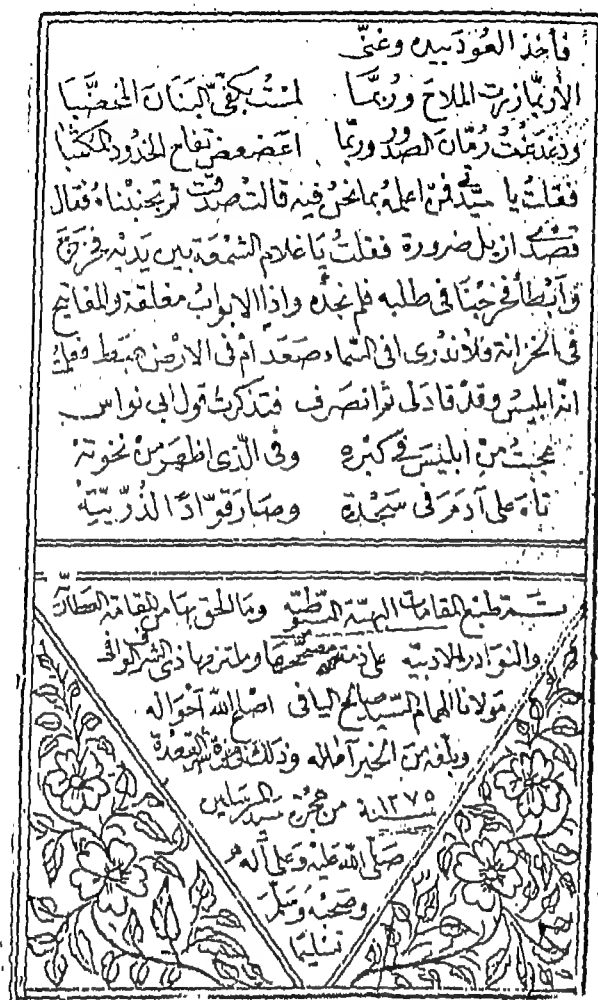 فأخذ العود بيده وغنّى
الأربّما زرت الملاحَ وربّما لمستُ بكفّي البَنَانَ المخضّبا
ودغدغتُ رُمّان الصدور وربّما اعضعض تفاح الخدود المكتبا
فقلتُ يا سيّدي فمن اعلمهُ بما نحن فيه قالت صدقت ثم تجنبنا وفقال
قصدي ازيل ضرورة فقلتُ يا غلام الشمعة بين يديه فخرج
وأبطأ فخرجنا في طلبه فلم نجده واذا الابوابُ مغلقة والمفاتيح
في الخزانة فلا ندرى افى السّماء صَعَدَ أم فى الارض هبط فعلمتُ
انّه ابليس وقد قاد لى ثم انصرف فتذكرت قول ابى نواس
عجبتُ من ابليسَ في كبره وفي الّذى اظهرَ من نخوته
تاهَ على آدمَ فى سَجْدة وصَارَ قوّادًا لذُرّيّتِه
تمّ طبع المقامات البهيّة السيوطيّه وما الحق بها من المقامة
والنوادر الادبيّه على ذمة مصححها وملتزمها ذى
مولانا الهمام السيد صالح اليافى اصلح الله احواله
وبلّغه من الخير آماله وذلك فى غرة القعدة
سنة ١٢٧٥ من هجرة سيد المرسلين
صلّى الله عليه وعلى آله
وصحبه وسلّم
تسليما